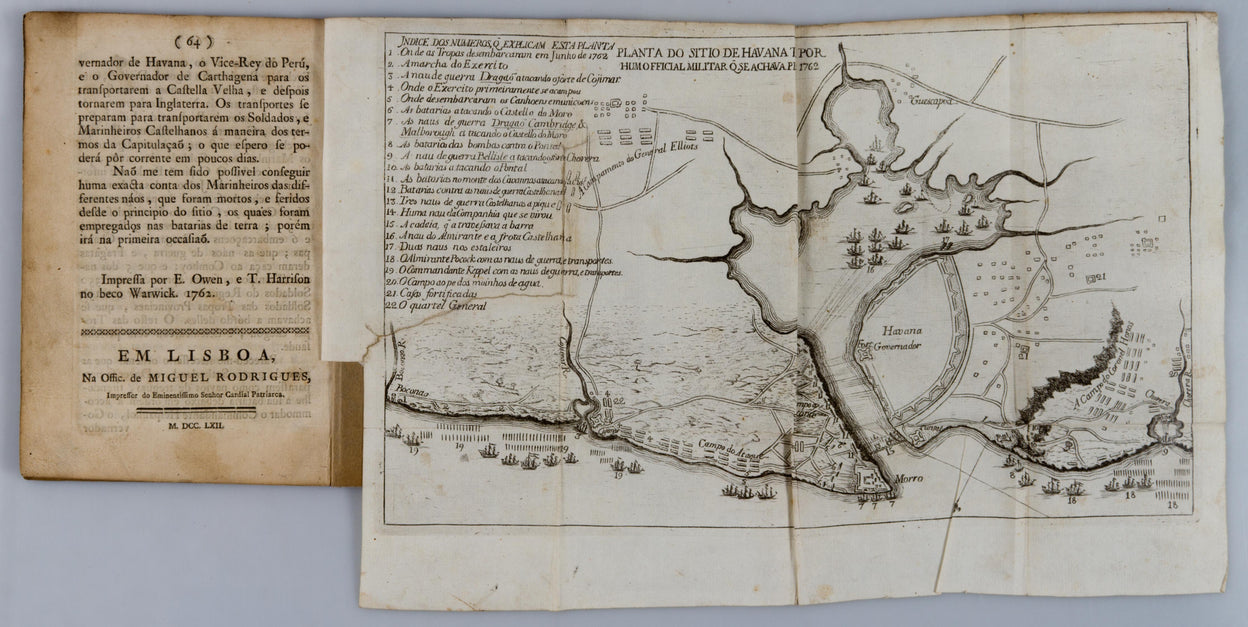 ( 64 )
vernador de Havana, o Vice-Rey do Perú,
e o Governador de Carthagena para os
transportarem a Castella Velha, e despois
tornarem para Inglaterra. Os transportes se
preparam para transportarem os Soldados, e
Marinheiros Castelhanos á maneira dos ter-
mos da Capitulaçaõ; o que espero se po-
derá pôr corrente em poucos dias.
Naõ me tem sido possivel conseguir
huma exacta conta dos Marinheiros das dif-
ferentes náos, que foram mortos, e feridos
desde o principio do sitio, os quaes foram
empregados nas batarias de terra; porém
irá na primeira occasiaõ.
Impressa por E. Owen, e T. Harrison
no beco Warwick. 1762.
EM LISBOA,
Na Offic. de MIGUEL RODRIGUES,
Impressor do Eminentissimo Senhor Cardial Patriarca.
M. DCC. LXII.
INDICE DOS NUMEROS, Q̃ EXPLICAM ESTA PLANTA
1 Onde as Tropas desembarcaram em Junho de 1762
2. A marcha do Exercito
3 A nau de guerra Dragaõ atacando o forte de Cojimar
4. Onde o Exercito primeiramente se acampou
5 Onde desembarcaram os Canhoens e municoens
6. As batarias atacando o Castello do Moro
7. As naus de guerra Dragaõ Cambridge &
Malborough atacando o Castello do Moro
8. As batarias das bombas contra o Pontal
9. A nau de guerra Bellisle atacando o forte Chorera
10. As batarias atacando o Pontal
11. As batarias no monte das Cavannas atacando
12. Batarias contra as naus de guerra Castelhanas
13. Tres naus de guerra Castelhanas a pique
14. Huma nau da Companhia que se virou
15. A cadeia, q̃ atravessava a barra
16. A nau do Almirante e a frota Castelhana
17. Duas naus nos estaleiros
18. O Almirante Pocock com as naus de guerra, e transportes.
19. O Commandante Keppel com as naus de guerra, e transportes.
20. O Campo ao pe dos moinhos de agua
21. Casas fortificadas
22 O quartel General
PLANTA DO SITIO DE HAVANA POR
HUM OFFICIAL MILITAR Q̃ SE ACHAVA 1762
Guascapoa
Acampamento do General Elliots
Havana
Governador
21
16
17
Bocanao R.
Bocanao
Cojimar
22
3
Campo do Ataque
Morro
A Campo do Coronel Howe
Chorera
Chorera River
15
9
19
19
19
19
7 7 7
8
18
18
18
18